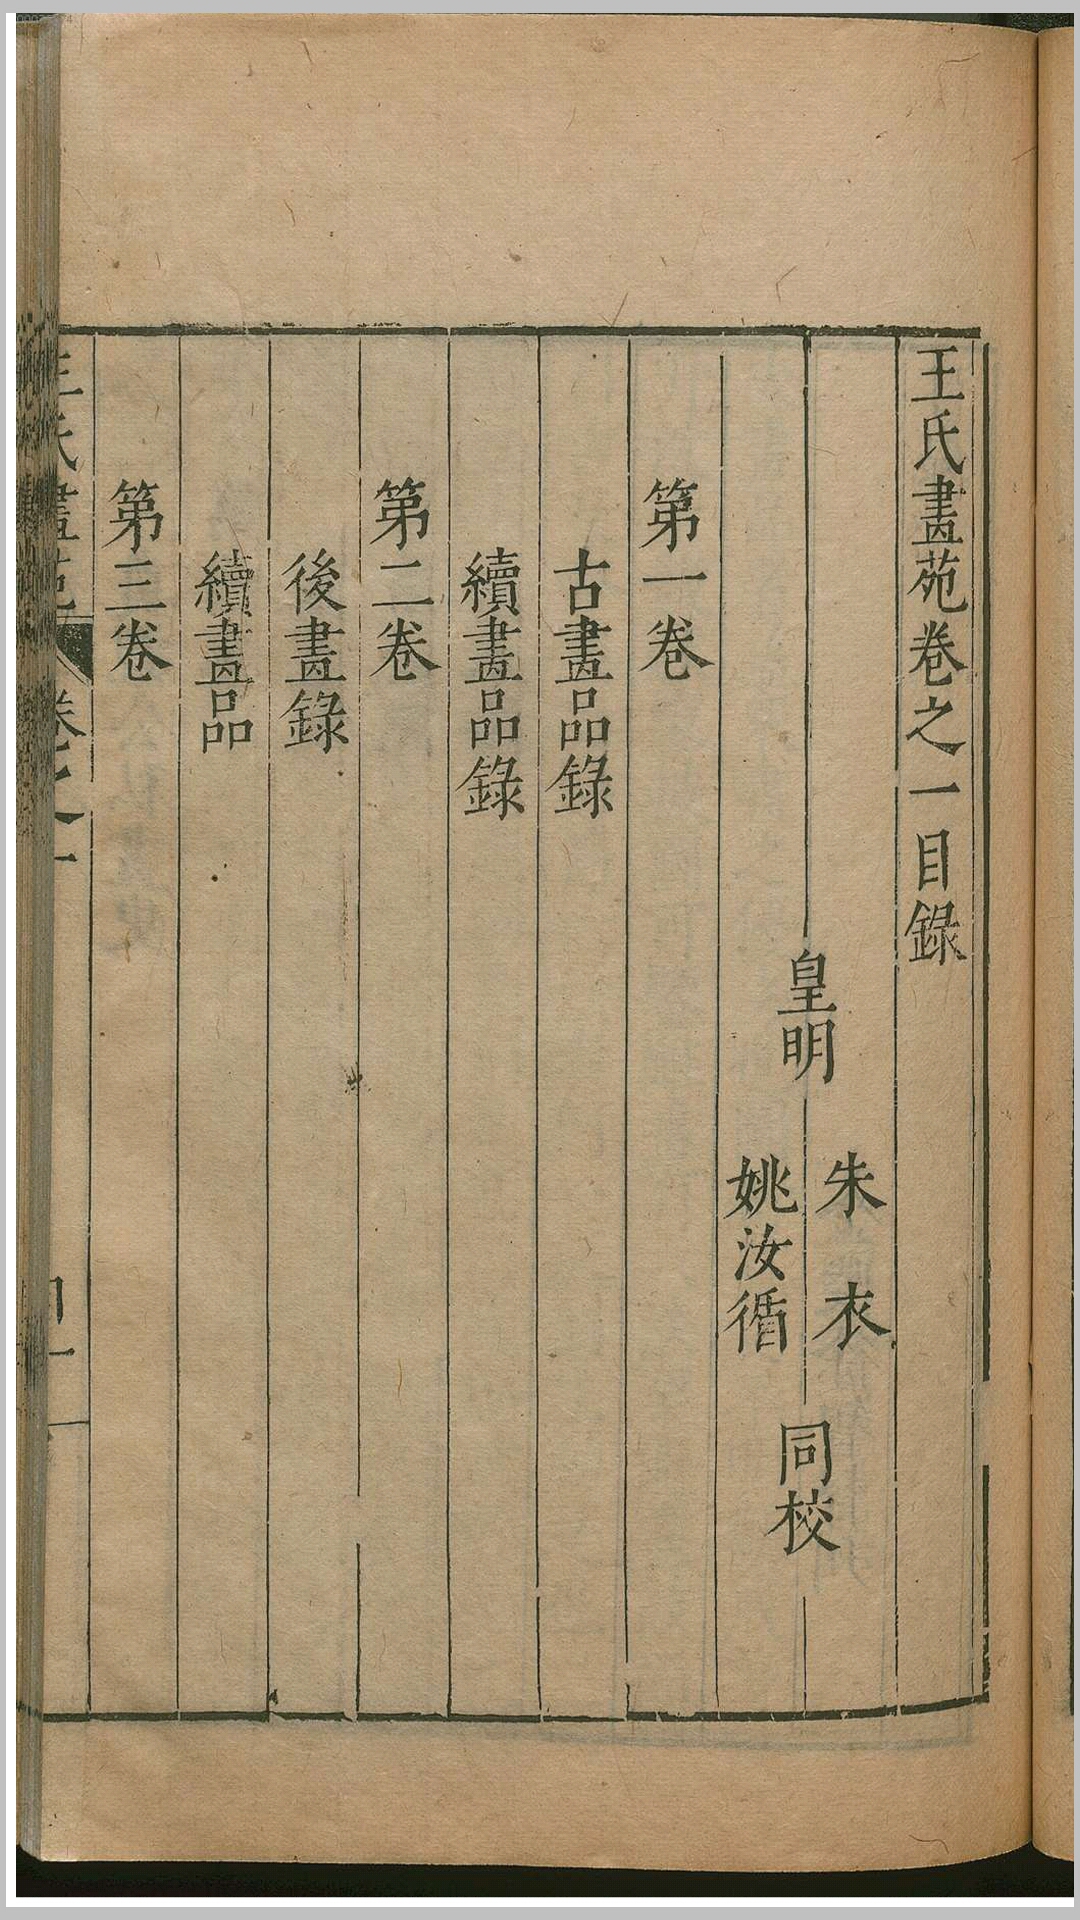 王氏畫苑卷之一目録
皇明
朱衣
姚汝循
同校
第一卷
古畫品錄
續畫品錄
第二卷
後畫錄
續畫品
第三卷
王氏畫苑
卷之一